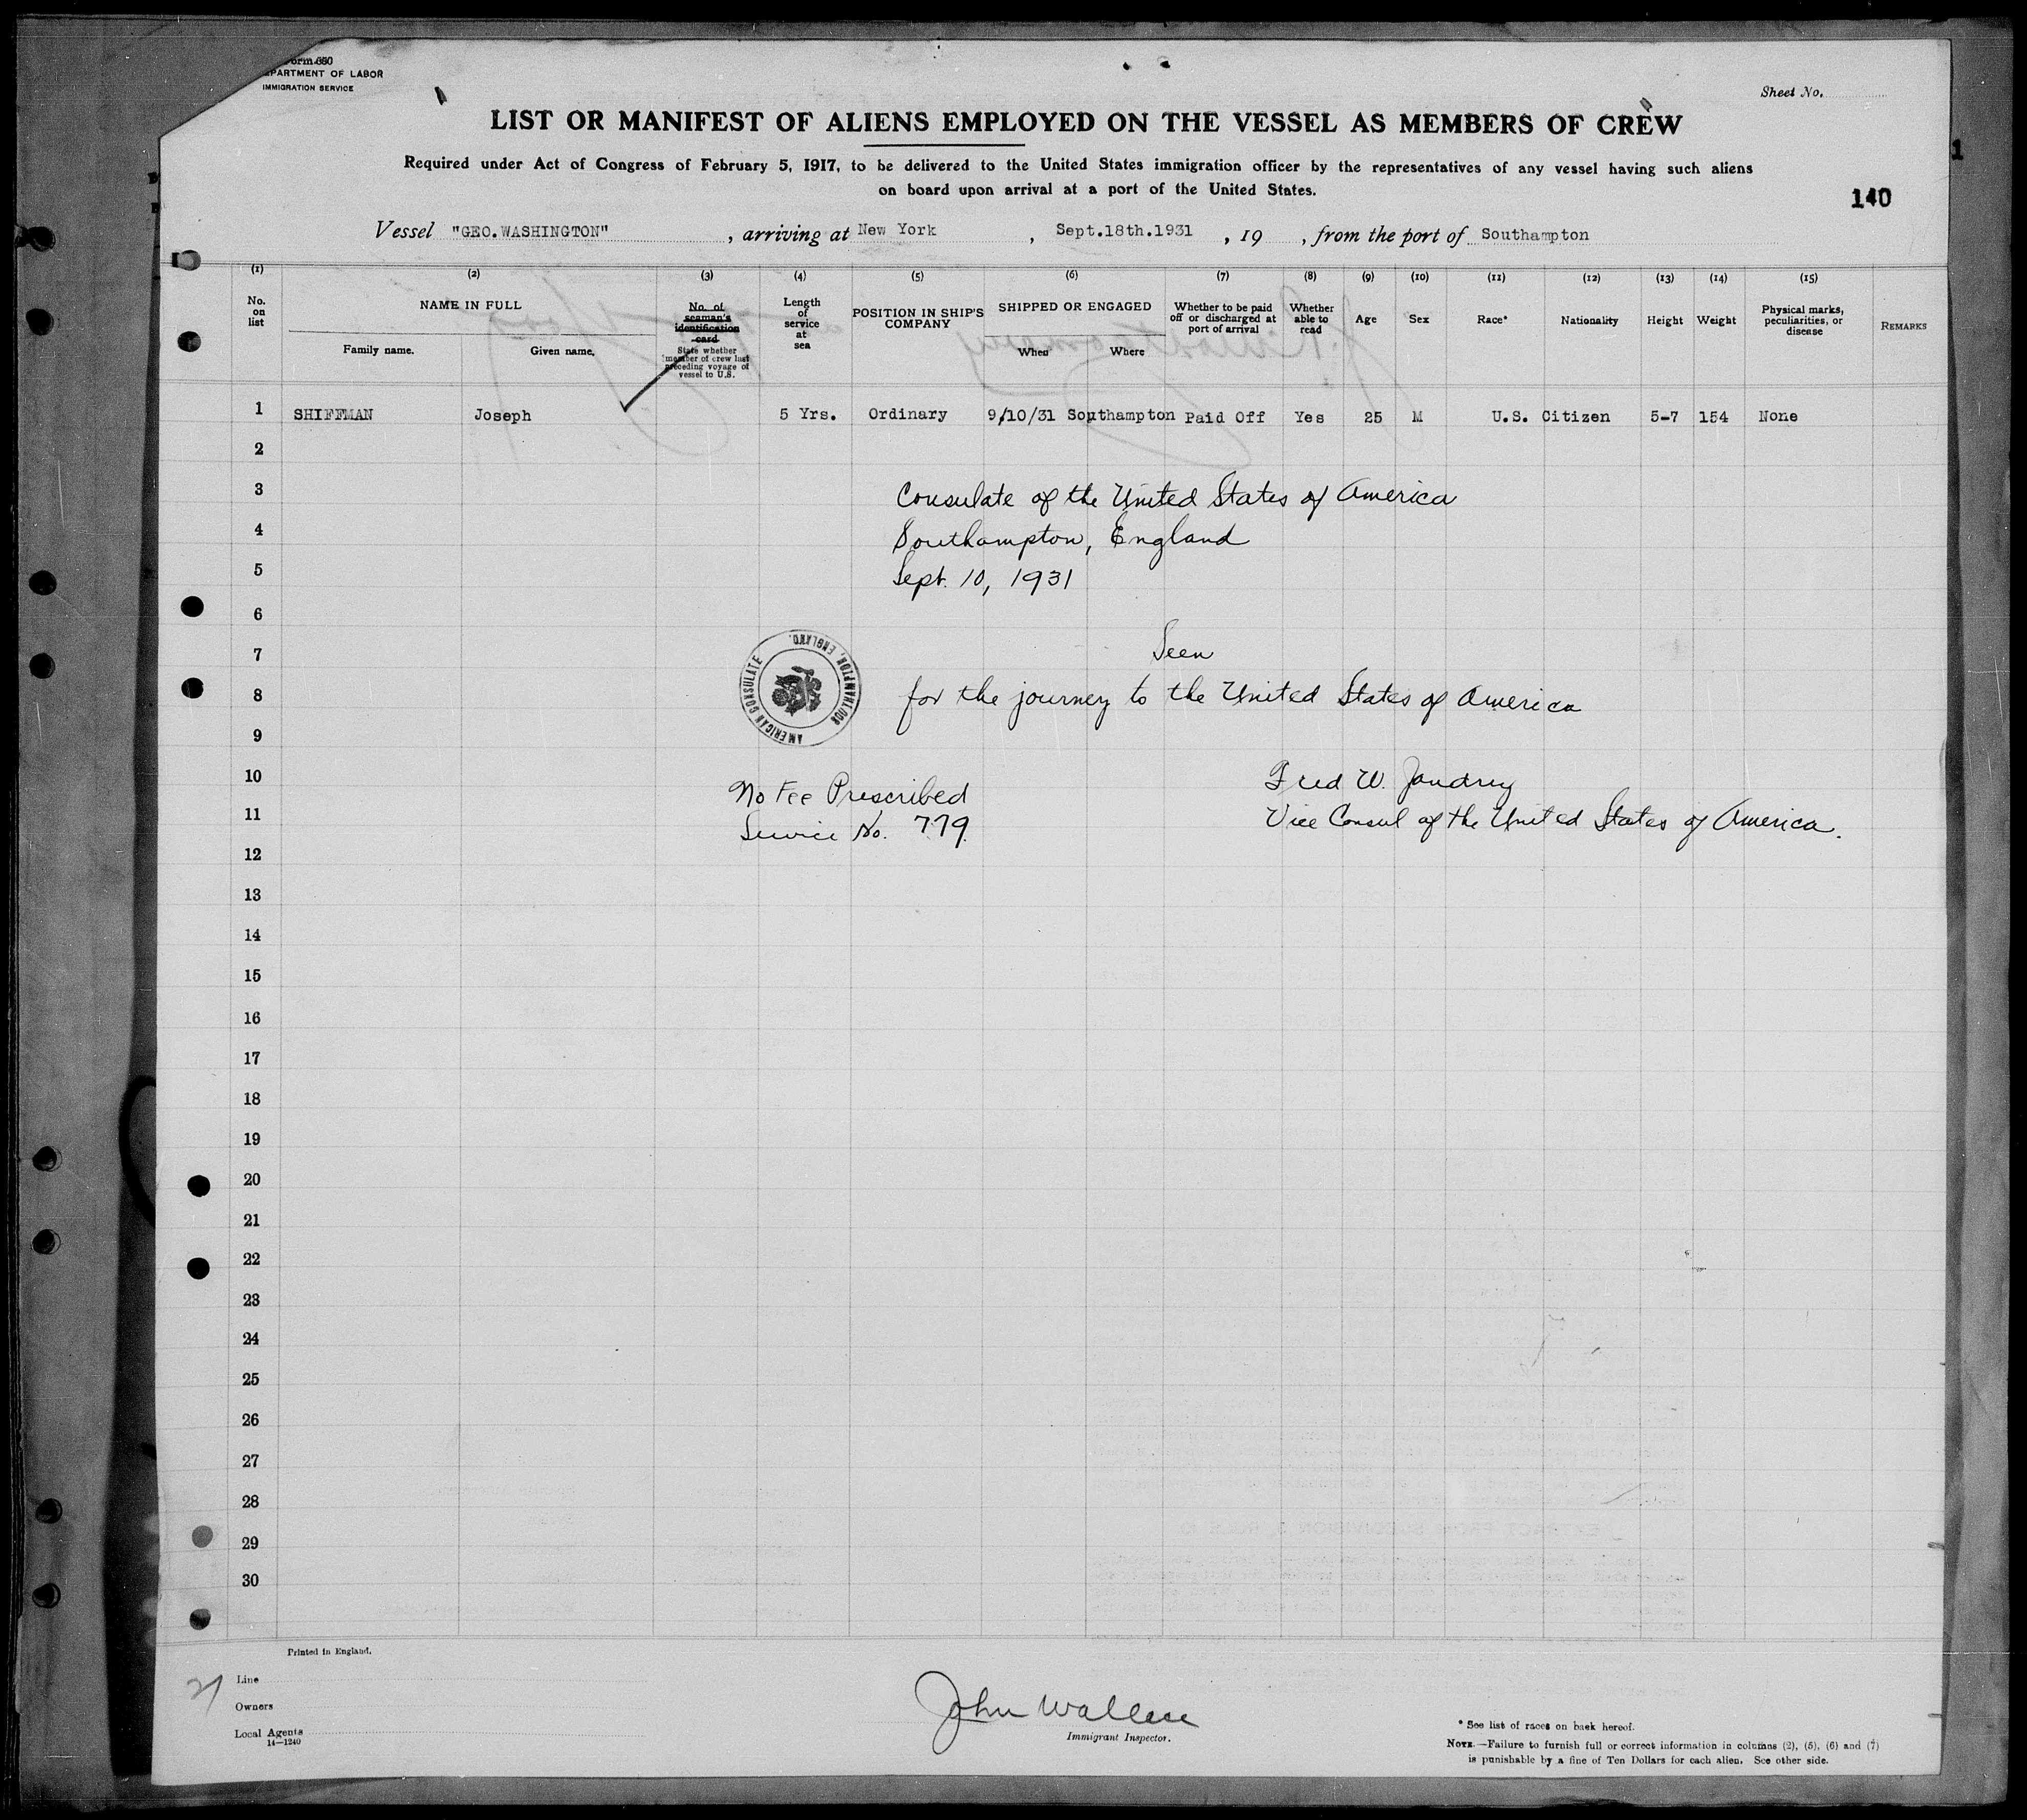 Form 680
DEPARTMENT OF LABOR
IMMIGRATION SERVICE
Sheet No.
LIST OR MANIFEST OF ALIENS EMPLOYED ON THE VESSEL AS MEMBERS OF CREW
Required under Act of Congress of February 5, 1917, to be delivered to the United States immigration officer by the representatives of any vessel having such aliens
on board upon arrival at a port of the United States.
140
Vessel "GEO.WASHINGTON" , arriving at New York , Sept.18th.1931 , 19 , from the port of Southampton
(1) (2) (3) (4) (5) (6) (7) (8) (9) (10) (11) (12) (13) (14) (15)
No. on list
NAME IN FULL
Family name. Given name.
No. of seaman's identification card
State whether member of crew last preceding voyage of vessel to U.S.
Length of service at sea
POSITION IN SHIP'S COMPANY
SHIPPED OR ENGAGED
When Where
Whether to be paid off or discharged at port of arrival
Whether able to read
Age
Sex
Race*
Nationality
Height
Weight
Physical marks, peculiarities, or disease
REMARKS
1 SHIFFMAN Joseph 5 Yrs. Ordinary 9/10/31 Southampton Paid Off Yes 25 M U.S. Citizen 5-7 154 None
2
3 Consulate of the United States of America
4 Southampton, England
5 Sept. 10, 1931
6
7 Seen
AMERICAN CONSULATE SOUTHAMPTON, ENGLAND.
8 for the journey to the United States of America
9
10 No Fee Prescribed Fred W. Jandrey
11 Service No. 779. Vice Consul of the United States of America.
12
13
14
15
16
17
18
19
20
21
22
23
24
25
26
27
28
29
30
Printed in England.
Line
Owners
Local Agents
14—1240
John Wallace
Immigrant Inspector.
* See list of races on back hereof.
NOTE.—Failure to furnish full or correct information in columns (2), (5), (6) and (7)
is punishable by a fine of Ten Dollars for each alien. See other side.